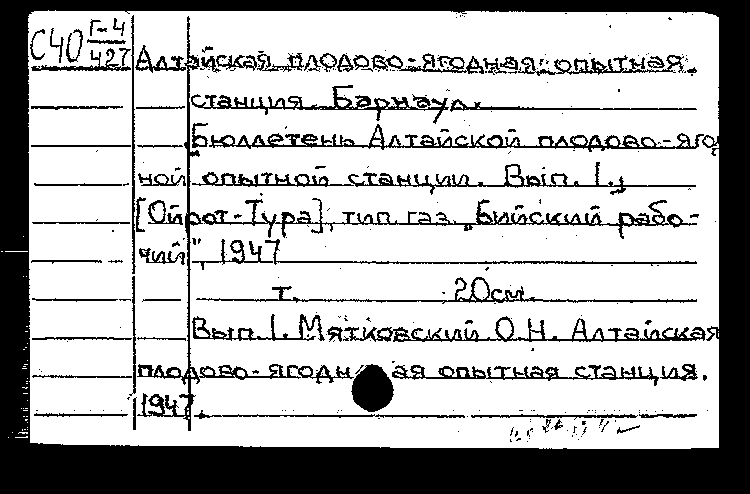 С40 Г-4/427
Алтайская плодово-ягодная опытная
станция. Барнаул.
Бюллетень Алтайской плодово-яго
ной опытной станции. Вып. 1.,
[Ойрот-Тура], тип. газ. „Бийский рабо-
чий", 1947
т. 20см.
Вып.1. Мятковский О.Н. Алтайская
плодово-ягодн ая опытная станция.
1947.